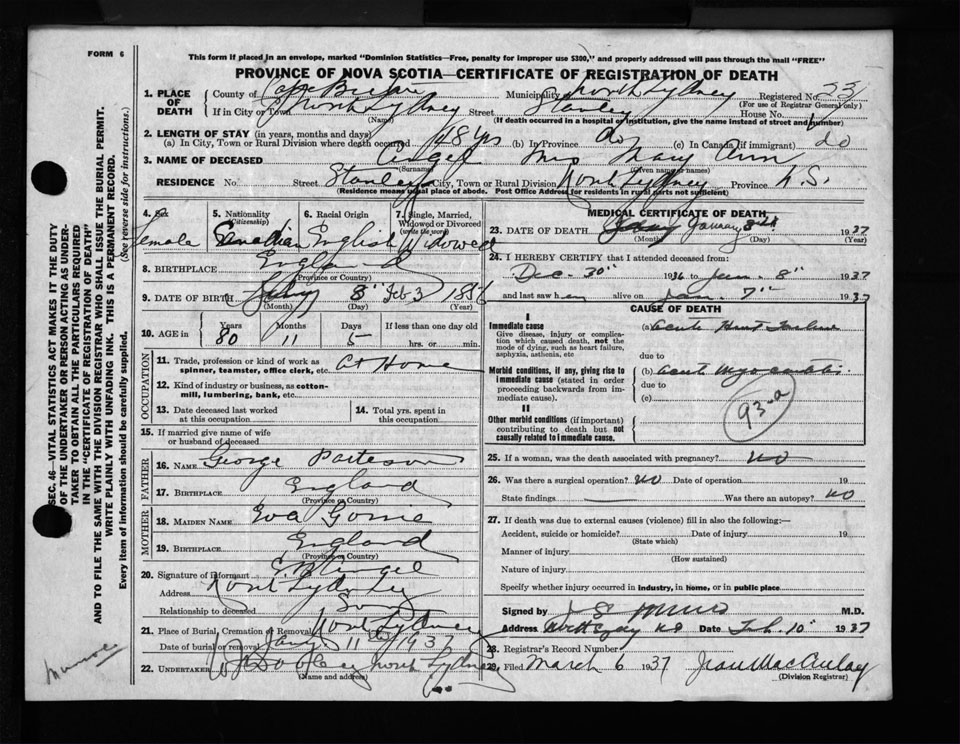 FORM 6
This form if placed in an envelope, marked "Dominion Statistics—Free, penalty for improper use $300," and properly addressed will pass through the mail "FREE"
PROVINCE OF NOVA SCOTIA—CERTIFICATE OF REGISTRATION OF DEATH
SEC. 46—VITAL STATISTICS ACT MAKES IT THE DUTY
OF THE UNDERTAKER OR PERSON ACTING AS UNDER-
TAKER TO OBTAIN ALL THE PARTICULARS REQUIRED
IN THE "CERTIFICATE OF REGISTRATION OF DEATH"
AND TO FILE THE SAME WITH THE DIVISION REGISTRAR WHO SHALL ISSUE THE BURIAL PERMIT.
WRITE PLAINLY WITH UNFADING INK. THIS IS A PERMANENT RECORD.
Every item of information should be carefully supplied. (See reverse side for instructions.)
1. PLACE OF DEATH
County of Cape Breton Municipality North Sydney Registered No. 23
(For use of Registrar General only)
If in City or Town North Sydney Street Stanley House No.
(Name) (If death occurred in a hospital or institution, give the name instead of street and number)
2. LENGTH OF STAY (in years, months and days)
(a) In City, Town or Rural Division where death occurred 48 yrs (b) In Province do (c) In Canada (if immigrant) do
3. NAME OF DECEASED Angel Mrs Mary Ann
(Surname) (Given name or names)
RESIDENCE No. Street Stanley City, Town or Rural Division North Sydney Province N.S.
(Residence means usual place of abode. Post Office Address for residents in rural parts not sufficient)
4. Sex Female
5. Nationality (Citizenship) Canadian
6. Racial Origin English
7. Single, Married, Widowed or Divorced (write the word) Widowed
8. BIRTHPLACE England
(Province or Country)
9. DATE OF BIRTH 3 Feb 3 1856
(Month) (Day) (Year)
10. AGE in Years 80 Months 11 Days 5 If less than one day old hrs. or min.
OCCUPATION
11. Trade, profession or kind of work as spinner, teamster, office clerk, etc. At Home
12. Kind of industry or business, as cotton-mill, lumbering, bank, etc.
13. Date deceased last worked at this occupation
14. Total yrs. spent in this occupation
15. If married give name of wife or husband of deceased
FATHER
16. NAME George
17. BIRTHPLACE England
(Province or Country)
MOTHER
18. MAIDEN NAME Eva
19. BIRTHPLACE England
(Province or Country)
20. Signature of informant Angel
Address North Sydney
Relationship to deceased Son
21. Place of Burial, Cremation or Removal North Sydney
Date of burial or removal Jany 11 1937
22. UNDERTAKER North Sydney
(Name and address)
MEDICAL CERTIFICATE OF DEATH
23. DATE OF DEATH January 8th 1937
(Month) (Day) (Year)
24. I HEREBY CERTIFY that I attended deceased from:
Dec. 30" 1936 to Jan. 8" 1937
and last saw her alive on Jan. 7" 1937
CAUSE OF DEATH
I
Immediate cause
Give disease, injury or complication which caused death, not the mode of dying, such as heart failure, asphyxia, asthenia, etc
(a) Acute Heart Failure
due to
Morbid conditions, if any, giving rise to immediate cause (stated in order proceeding backwards from immediate cause).
(b) Acute Myocarditis
due to
(c)
II
Other morbid conditions (if important) contributing to death but not causally related to immediate cause.
93-a
25. If a woman, was the death associated with pregnancy? No
26. Was there a surgical operation? No Date of operation 19
State findings Was there an autopsy? No
27. If death was due to external causes (violence) fill in also the following:—
Accident, suicide or homicide? Date of injury 19
(State which)
Manner of injury
(How sustained)
Nature of injury
Specify whether injury occurred in industry, in home, or in public place
Signed by M.D.
Address Date Feb. 10" 1937
28. Registrar's Record Number
29. Filed March 6 1937 Jean MacAulay
(Division Registrar)